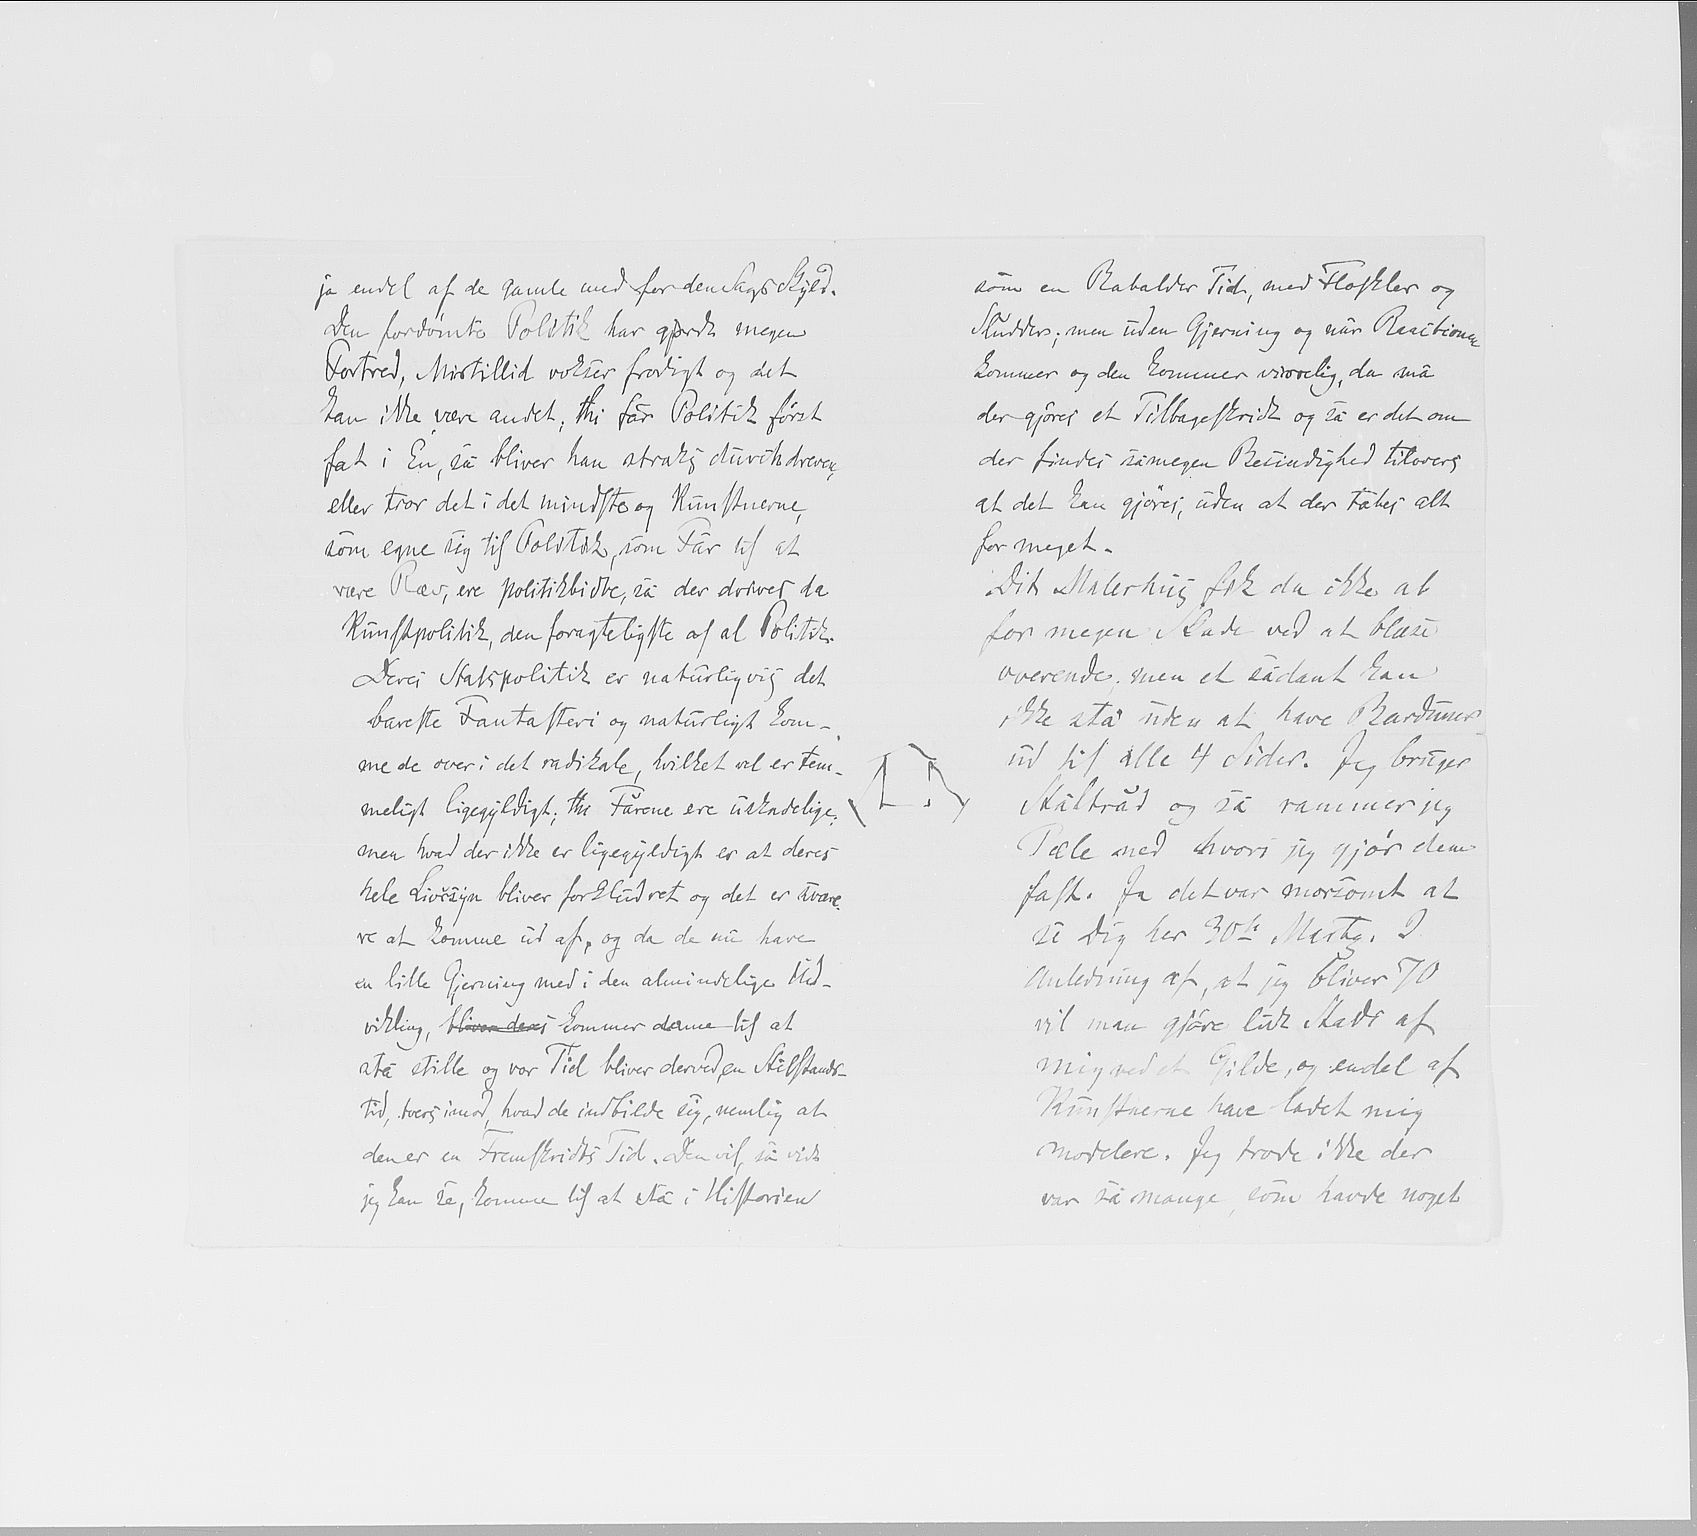 ja endel af de gamle med for den Sags Skyld.
Den fordömte Politik har gjordt megen
Fortred, Mistillid vokser frodigt og det
kan ikke være andet, thi får Politik først
fat i En, så bliver han straks durchdreven,
eller tror det i det mindste og Kunstnerne,
som egne sig til Politik, som Får til at
være Ræv, ere politikbidte, så der drives da
Kunstpolitik, den foragteligste af al Politik.
Deres Statspolitik er naturligvis det
bareste Fantasteri og naturligt kom-
me de over i det radikale, hvilket vel er tem-
meligt ligegyldigt; thi Fårene ere uskadelige;
men hvad der ikke er ligegyldigt er at deres
hele Livssyn bliver forkludret og det er svære-
re at komme ud af, og da de nu have
en lille Gjerning med i den almindelige Ud-
vikling, bliver deres kommer denne til at
stå stille og vor Tid bliver derved en Stilstands-
tid, tvers imod, hvad de indbilde sig, nemlig at
den er en Fremskridts Tid. Den vil, så vidt
jeg kan se, komme til at stå i Historien
som en Rabalder Tid, med Floskler og
Sludder; men uden Gjerning og når Reactionen
kommer og den kommer virkelig, da må
der gjöres et Tilbageskridt og så er det om
der findes såmegen Besindighed tilovers
at det kan gjöres, uden at der tabes alt
for meget.
Dit Malerhus fik da ikke alt
for megen Skade ved at blæse
overende, men et sådant kan
ikke stå uden at have Barduner
ud til alle 4 Sider. Jeg bruger
Ståltråd og så rammer jeg
Pæle ned hvori jeg gjör dem
fast. Ja det var morsomt at
se Dig her 30te Marts. I
Anledning af, at jeg bliver 70
vil man gjöre lidt Stads af
mig ved et Gilde, og endel af
Kunstnerne have ladet mig
modelere. Jeg trode ikke der
var så mange, som havde noget